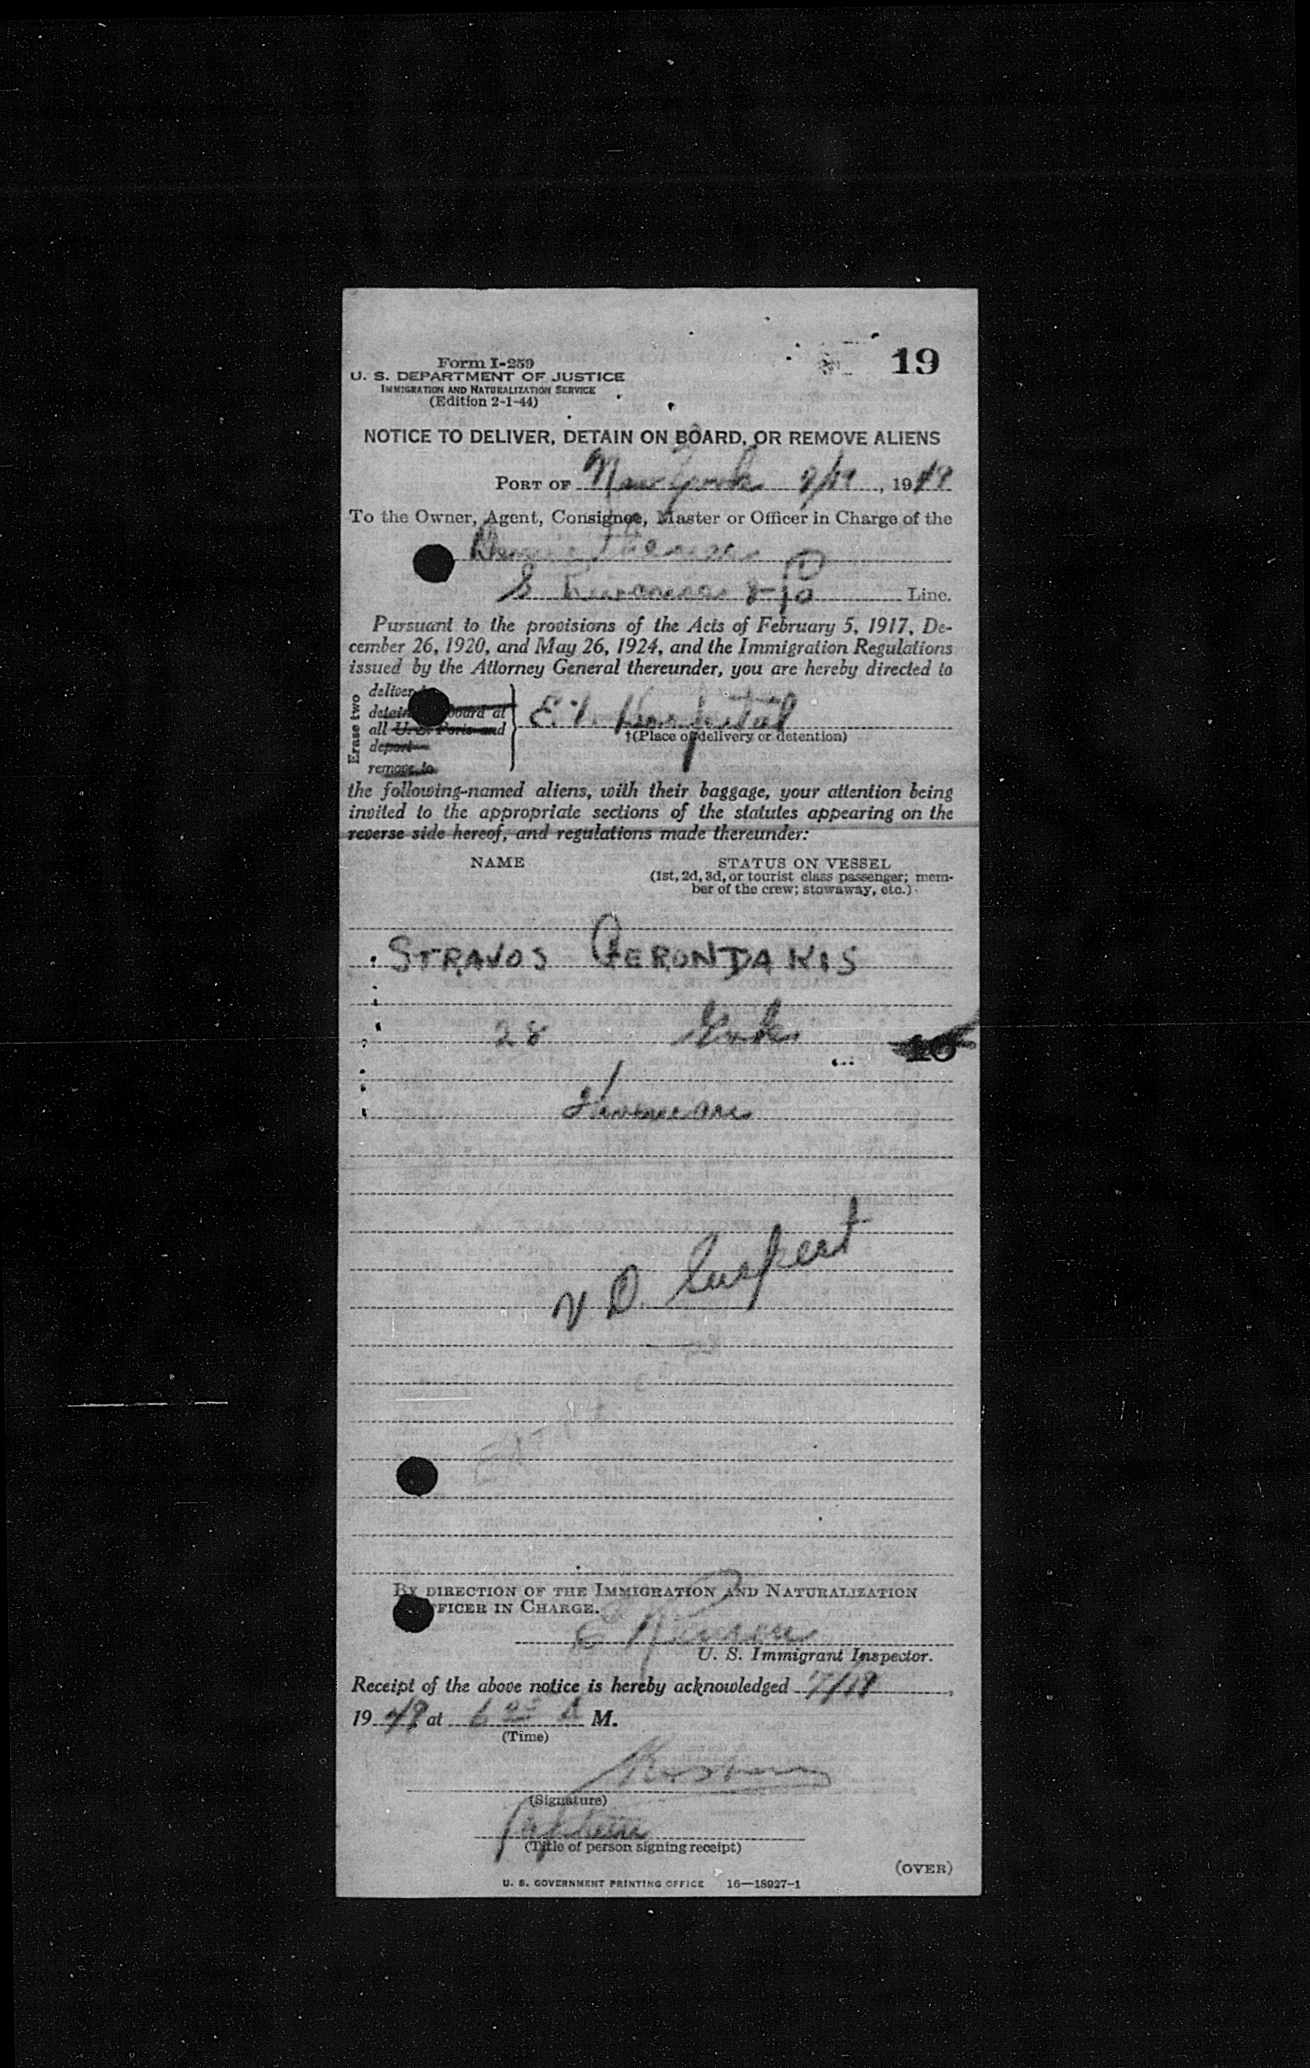 19
Form I-259
U. S. DEPARTMENT OF JUSTICE
IMMIGRATION AND NATURALIZATION SERVICE
(Edition 2-1-44)
NOTICE TO DELIVER, DETAIN ON BOARD, OR REMOVE ALIENS
PORT OF New York 7/19, 1949
To the Owner, Agent, Consignee, Master or Officer in Charge of the
S & Co Line.
Pursuant to the provisions of the Acts of February 5, 1917, De-
cember 26, 1920, and May 26, 1924, and the Immigration Regulations
issued by the Attorney General thereunder, you are hereby directed to
Erase two
deliver
detain board at
all U. S. Ports and
deport
remove to
E.I. Hospital
†(Place of delivery or detention)
the following-named aliens, with their baggage, your attention being
invited to the appropriate sections of the statutes appearing on the
reverse side hereof, and regulations made thereunder:
NAME STATUS ON VESSEL
(1st, 2d, 3d, or tourist class passenger; mem-
ber of the crew; stowaway, etc.)
STRAVOS GERONDAKIS
28 Greek
16
Fireman
V D. Suspect
BY DIRECTION OF THE IMMIGRATION AND NATURALIZATION
OFFICER IN CHARGE.
U. S. Immigrant Inspector.
Receipt of the above notice is hereby acknowledged 7/19,
1949 at 6 A M.
(Time)
(Signature)
Captain
(Title of person signing receipt)
(OVER)
U. S. GOVERNMENT PRINTING OFFICE 16—18927-1